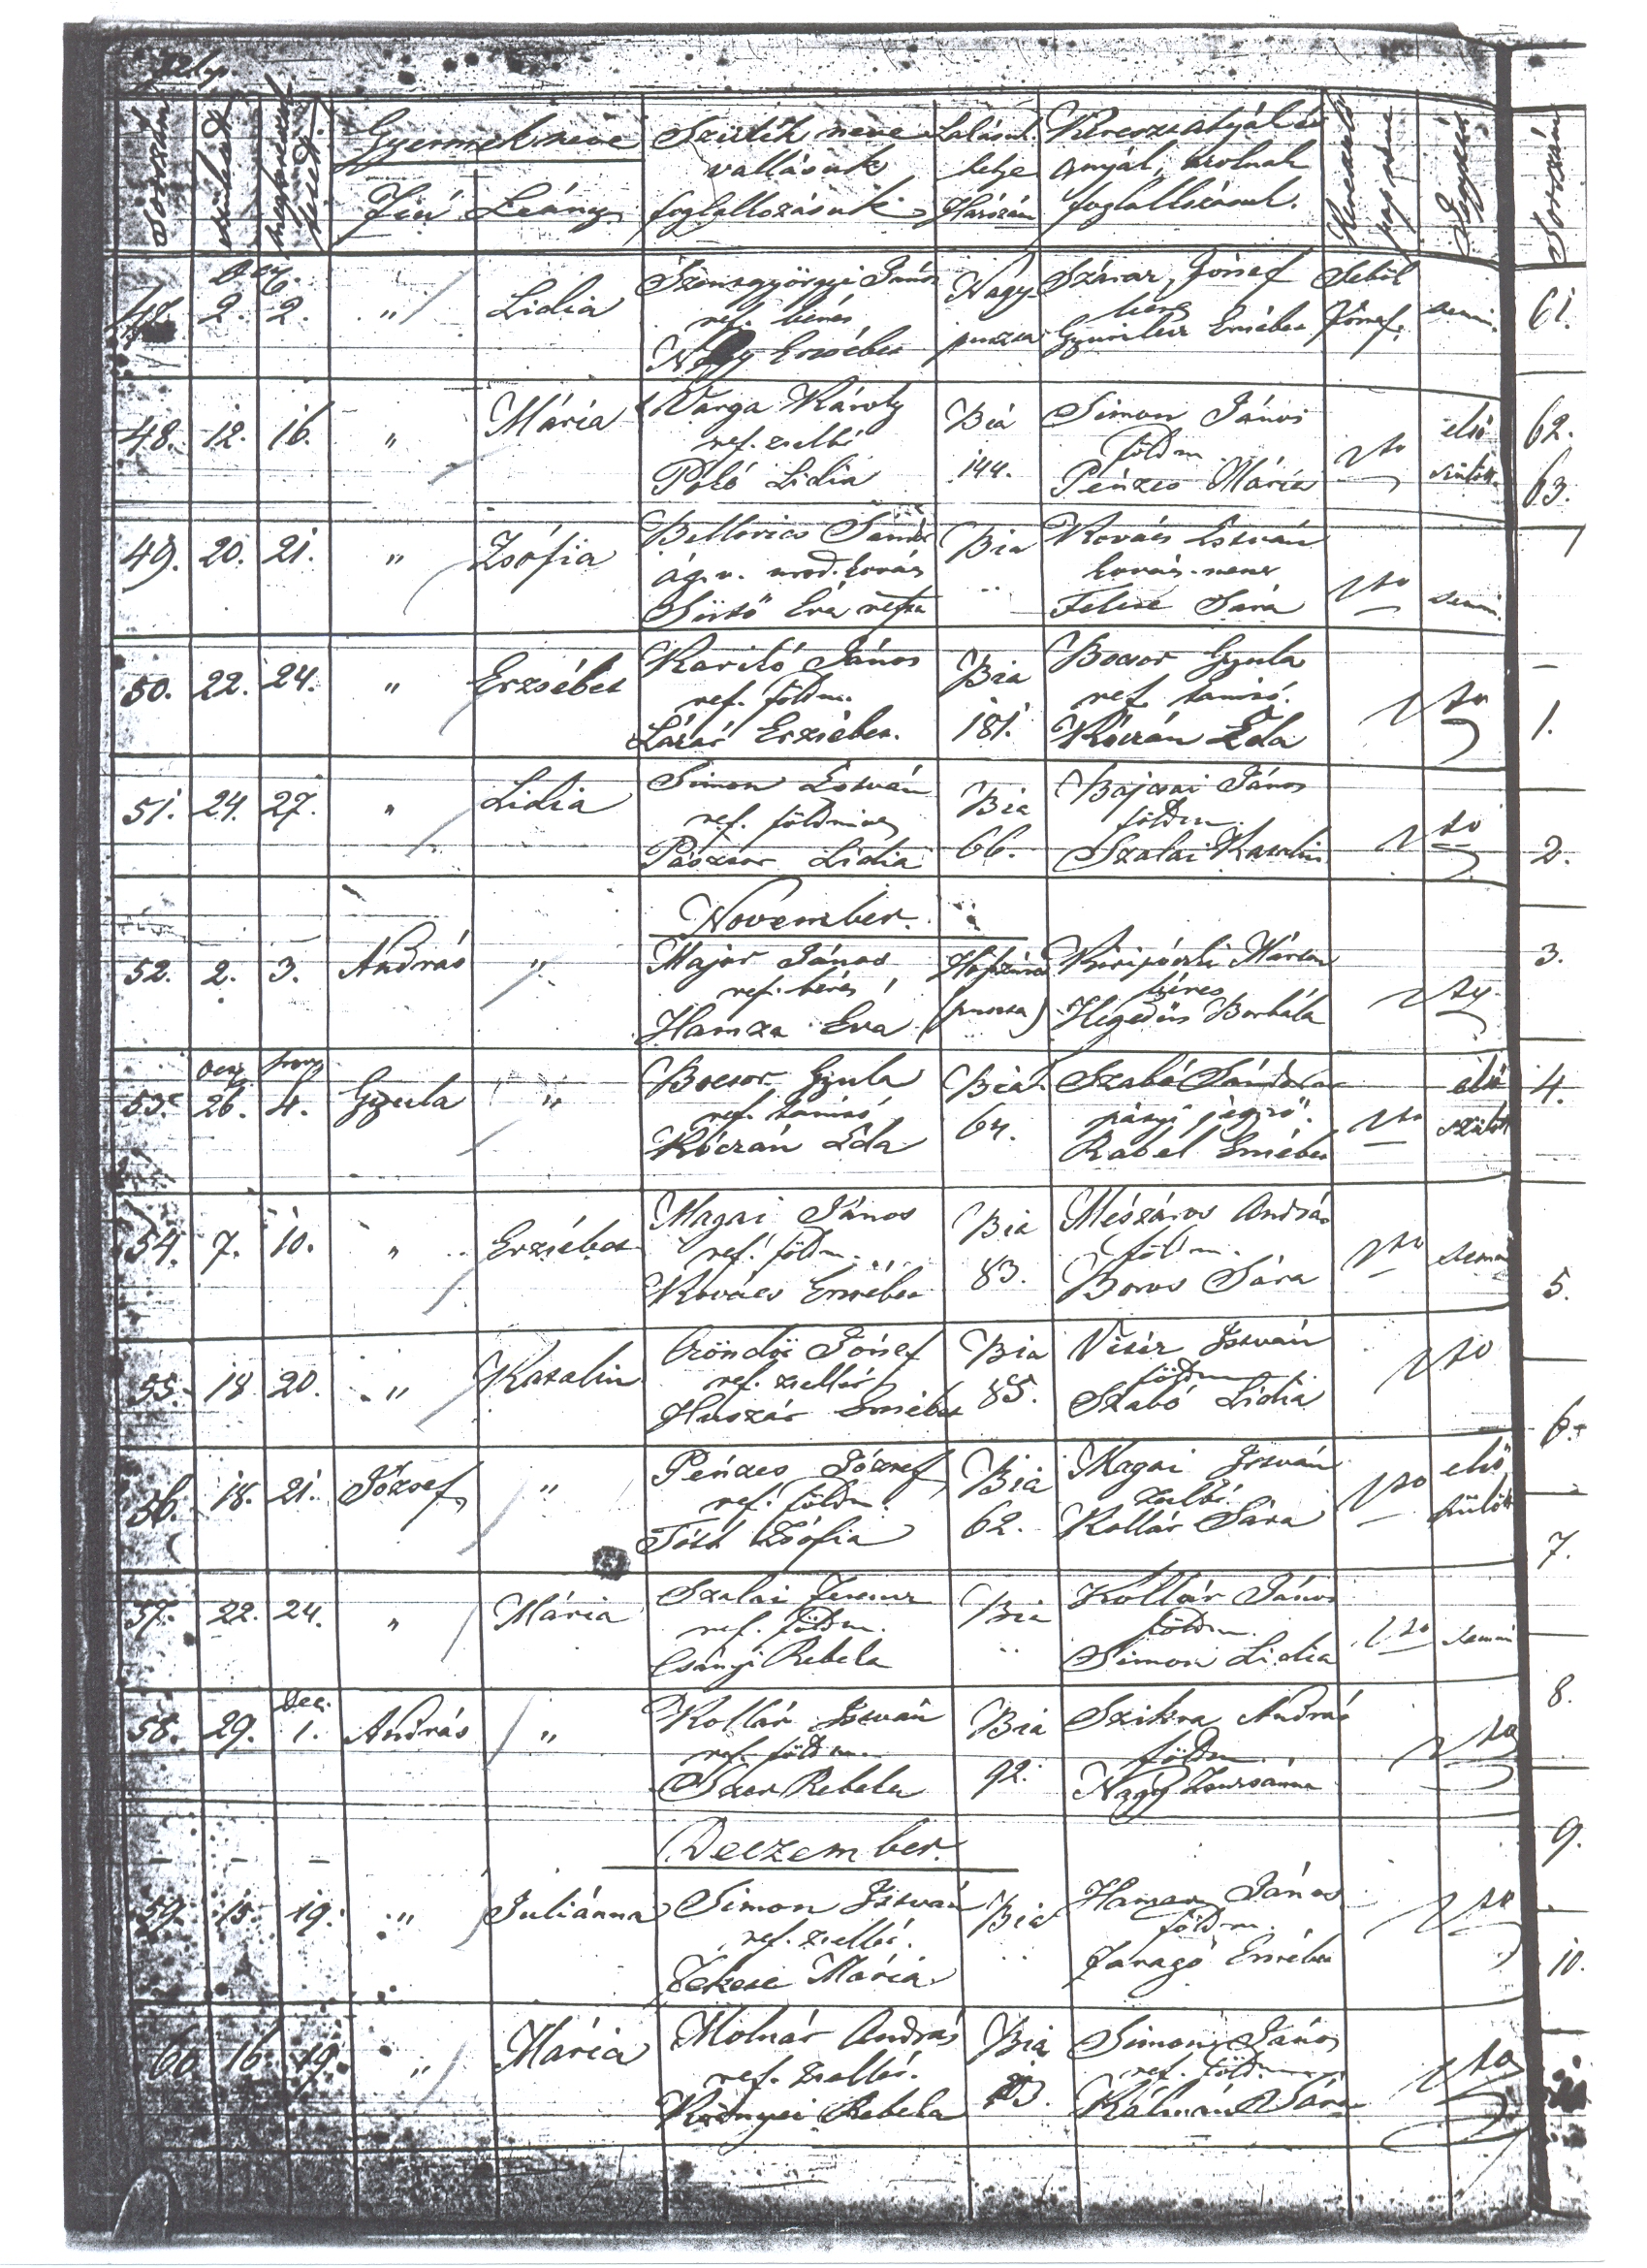 Sorszám született megkereszt. Gyermek neve Szülők neve Lakásuk Keresztatyák és Keresztelő Jegyzés Sorszám
vallásuk helye anyák, azoknak pap neve
Fiú Leány foglalkozásuk Házszám foglalkozásuk.
Oct.
47. 2. 2. " Lidia Szentgyörgyi János Nagy Száraz József Sebők semmi 61.
ref. béres puszta béres József
Nagy Erzsébet Erzsébet
48. 12. 16. " Mária Varga Károly Bia Simon János dto első 62.
ref. zsellér 144. földm. szülött 63.
Póló Lidia Pénzes Mária
49. 20. 21. " Zsófia Bellovics Sándor Bia Kovács István dto semmi
ág. v. urod. kovács " kovács mester
Sütő Éva refta Fekete Sára
50. 22. 24. " Erzsébet Karikó János Bia Bocsor Gyula dto 1.
ref. földm. 181. ref. tanító
Lázár Erzsébet Kóczán Eda
51. 24. 27. " Lidia Simon István Bia Bajcsai János dto 2.
ref. földmives 66. földm.
Pásztor Lidia Szalai Katalin
November.
52. 2. 3. András " Major János Kiripóczki Márton dto 3.
ref. béres (puszta) béres
Hamza Eva Hegedüs Borbála
Oct. Nov.
53. 26. 4. Gyula " Bocsor Gyula Bia Szabó Sándor dto első 4.
ref. tanító 64. jegyző szülött
Kóczán Eda Rábel Erzsébet
54. 7. 10. " Erzsébet Magai János Bia Mészáros András dto semmi
ref. földm. 83. földm. 5.
Kovács Erzsébet Boros Sára
55. 18 20. " Katalin Czöndör József Bia Vizér István dto
ref. zsellér 85. földm. 6.
Huszár Erzsébet Szabó Lidia
56. 18. 21. József " Pénzes József Bia Magai István dto első
ref. földm. 62. zsellér szülött
Tóth Zsófia Kollár Sára 7.
57. 22. 24. " Mária Szalai Ferencz Bia Kollár János dto semmi
ref. földm. " földm.
Csányi Rebeka Simon Lidia 8.
Dec.
58. 29. 1. András " Kollár István Bia Szikra András dto
ref. földm. 92. földm.
Szer Rebeka Nagy Zsuzsánna
Deczember. 9.
59. 15. 19. " Juliánna Simon István Bia János dto
ref. zsellér " földm.
Fekete Mária Faragó Erzsébet 10.
60. 16. 19. " Mária Molnár András Bia Simon János dto
ref. zsellér 3. ref. földm.
Környei Rebeka Kálmán Sára